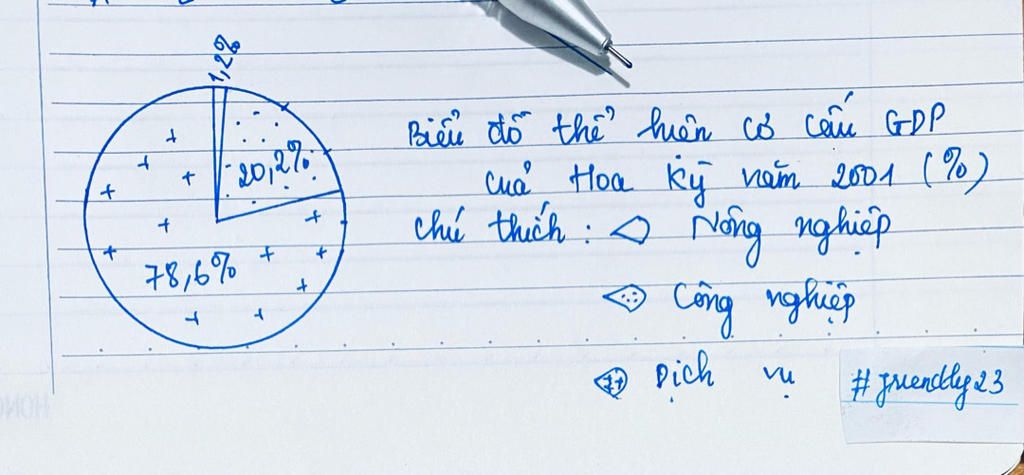 1,2%
20,2%
78,6%
Biểu đồ thể hiện cơ cấu GDP
cuả Hoa Kỳ năm 2001 (%)
chú thích : Nông nghiệp
Công nghiệp
Dịch vụ
#friendly23